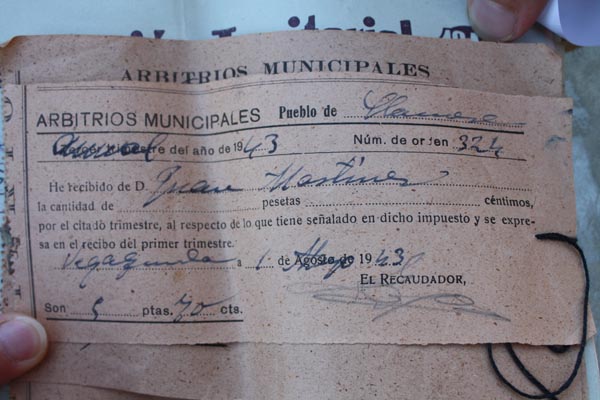 Territorial
ARBITRIOS MUNICIPALES
ARBITRIOS MUNICIPALES Pueblo de Llamera
Anual Tercer trimestre del año de 1943 Núm. de orden 324
He recibido de D. Juan Martínez
la cantidad de pesetas céntimos,
por el citado trimestre, al respecto de lo que tiene señalado en dicho impuesto y se expre-
sa en el recibo del primer trimestre.
a 1 de Agosto de 1943
EL RECAUDADOR,
Son 5 ptas. 70 cts.